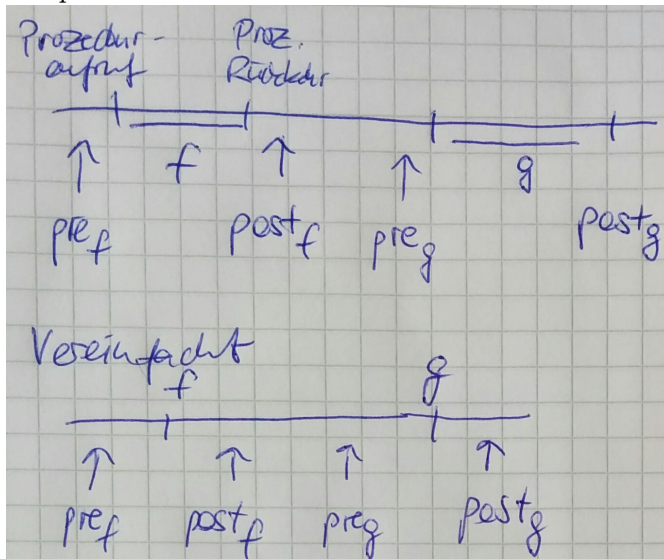 Prozedur- Proz.
aufruf Rückkehr
f g
pre_f post_f pre_g post_g
Vereinfacht
f g
pre_f post_f pre_g post_g